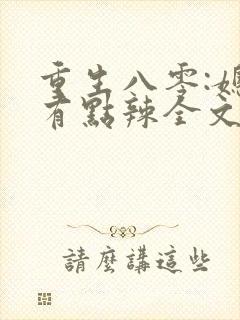 重生八零:媳
有點辣全文
請麼講這些